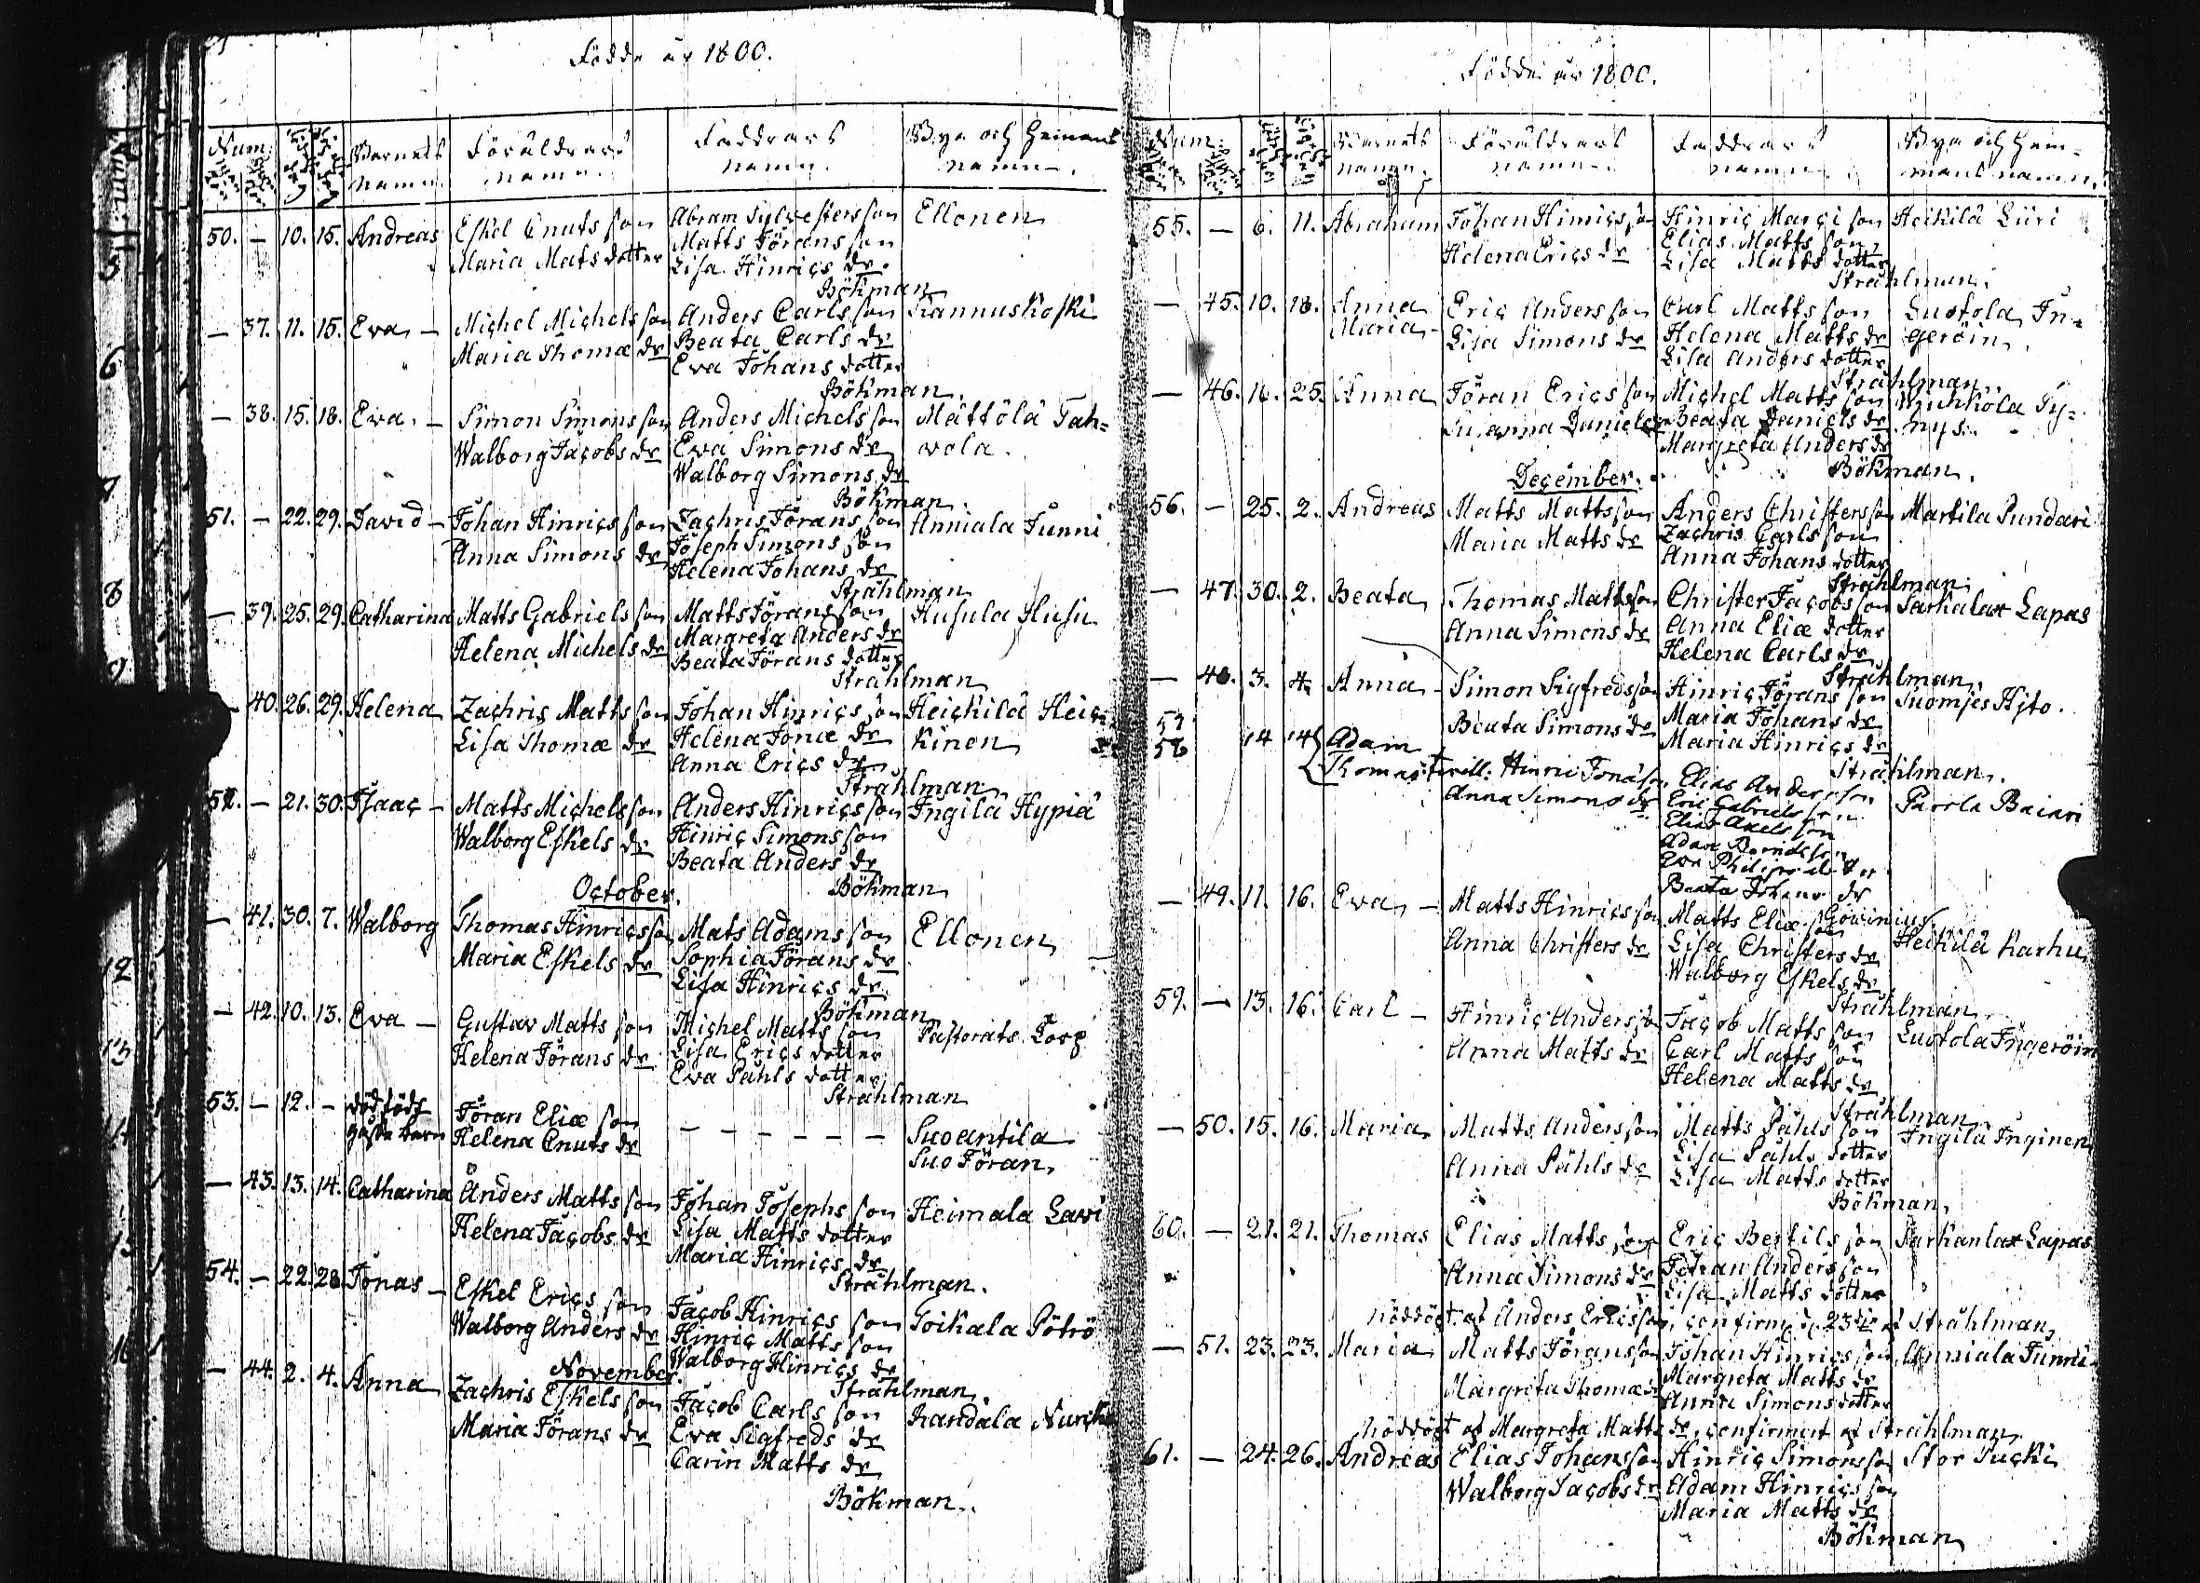 Födde år 1800.
Num: Barnets namn. Föräldrars namn. Faddrars namn. Bya och Hemans namn.
50. — 10. 15. Andreas Eskel Cnuts son Abram Sylvesters son Ellonen
Maria Mats dotter Matts Jörans son
Lisa Hinrics dr.
Bökman
— 37. 11. 15. Eva — Michel Michels son Anders Carls son Kannuskoski
Maria Thomæ dr Beata Carls dr
Eva Johans dotter
Bökman.
— 38. 15. 18. Eva. — Simon Simons son Anders Michels son Mättölä Tah=
Walborg Jacobs dr Eva Simons dr vola.
Walborg Simons dr
Bökman.
51. — 22. 29. David — Johan Hinrics son Zachris Jörans son Anniala Junni
Anna Simons dr Joseph Simons son
Helena Johans dr
Stråhlman
— 39. 25. 29. Catharina Matts Gabriels son Matts Jörans son Husula Husu
Helena Michels dr Margreta Anders dr
Beata Jörans dotter
Stråhlman
40. 26. 29. Helena Zachris Matts son Johan Hinrics son Heickilä Heic
Lisa Thomæ dr Helena Jonæ dr kinen
Anna Erics dr
Stråhlman.
52. — 21. 30. Isaac — Matts Michels son Anders Hinrics son Ingilä Hypiä
Walborg Eskels dr Hinric Simons son
Beata Anders dr
Bökman
October.
— 41. 30. 7. Walborg Thomas Hinrics son Mats Adams son Ellonen
Maria Eskels dr Sophia Jörans dr
Lisa Hinrics dr
Bökman
— 42. 10. 13. Eva — Gustav Matts son Michel Matts son Pastorats Torp
Helena Jörans dr Lisa Erics dotter
Eva Påhls dotter
Stråhlman
53. — 12. — dödfödt Jöran Eliæ son — — — — — — Suoantila
barn Helena Cnuts dr Suo Jöran.
— 43. 13. 14. Catharina Anders Matts son Johan Josephs son Heimala Lavi
Helena Jacobs dr Lisa Matts dotter
Maria Hinrics dr
Stråhlman.
54. — 22. 28. Jonas — Eskel Erics son Jacob Hinrics son Toikala Pötrö
Walborg Anders dr Hinric Matts son
Walborg Hinrics dr
Stråhlman.
November.
— 44. 2. 4. Anna Zachris Eskels son Jacob Carls son Randala
Maria Jörans dr Eva Sigfreds dr
Carin Matts dr
Bökman.
Födde år 1800.
Num. Barnets namn. Föräldrars namn. Faddrars namn. Bya och Hem=
mans namn.
55. — 6. 11. Abraham Johan Hinrics son Hinric Marci son Heikilä Liiri
Helena Erics dr Elias Matts son
Lisa Matts dotter
Stråhlman.
— 45. 10. 18. Anna Eric Anders son Carl Matts son Luotola In=
Maria Lisa Simons dr Helena Matts dr geröin.
Lisa Anders dotter
Stråhlman.
— 46. 16. 25. Anna Jöran Erics son Michel Matts son
Susanna Daniels Beata Daniels dr
Margreta Anders dr
Bökman.
December.
56. — 25. 2. Andreas Matts Matts son Anders Christers son Martila Pundari
Maria Matts dr Zachris Carls son
Anna Johans dotter
Stråhlman.
— 47. 30. 2. Beata Thomas Matts son Christer Jacobs son Sarkalax Lapas
Anna Simons dr Anna Eliæ dotter
Helena Carls dr
Stråhlman.
— 48. 3. 4. Anna — Simon Sigfreds son Hinric Jörans son Suomjes Hyto.
Beata Simons dr Maria Johans dr
Maria Hinrics dr
Stråhlman.
57 14 14 Adam
58 Thomas tvill: Hinric Jonæ son Elias Anders son Parola Bainri
Anna Simons dr Eric Gabriels son
Elias Axels son
Adam
Eva Philips dotter
Beata Johans dr
— 49. 11. 16. Eva — Matts Hinrics son Matts Eliæ son Heikilä Karhu
Anna Christers dr Lisa Christers dr
Walborg Eskels dr
Stråhlman
59. — 13. 16. Carl — Hinric Anders son Jacob Matts son Luotola Ingeröin
Anna Matts dr Carl Matts son
Helena Matts dr
Stråhlman
— 50. 15. 16. Maria Matts Anders son Matts Påhls son Ingilä Inginen
Anna Påhls dr Lisa Påhls dotter
Lisa Matts dotter
Bökman.
60. — 21. 21. Thomas Elias Matts son Eric Bertils son Sarkanlax Lapas
Anna Simons dr Johan Anders son
Lisa Matts dotter
Nöddöpt af Anders Ericsson, confirm: d. 23die af Stråhlman
— 51. 23. 23. Maria Matts Jörans son Johan Hinrics son Anniala Junni
Margreta Thomæ dr Margreta Matts dr
Anna Simons dotter
Nöddöpt af Margreta Matts dr, confirmert af Stråhlman
61. — 24. 26. Andreas Elias Johans son Hinric Simons son Stor Pucki
Walborg Jacobs dr Adam Hinrics son
Maria Matts dr
Bökman